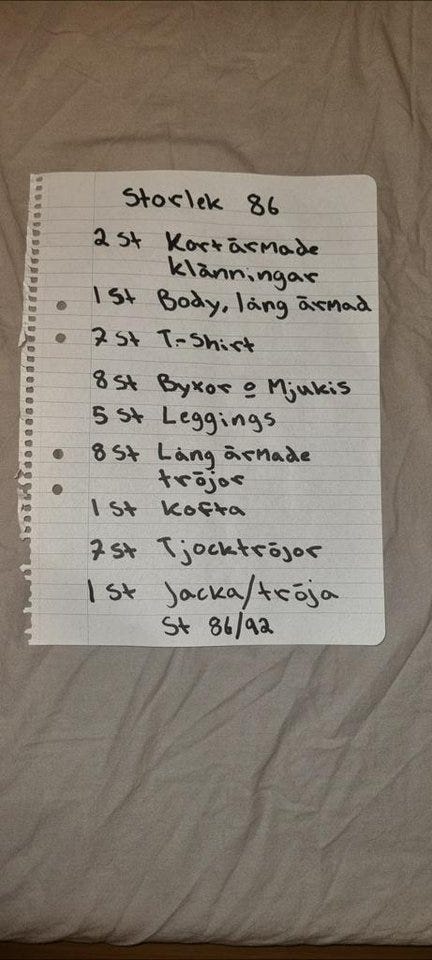 Storlek 86
2 st Kortärmade
klänningar
1 st Body, lång ärmad
7 st T-Shirt
8 st Byxor o Mjukis
5 st Leggings
8 st Lång ärmade
tröjor
1 st Kofta
7 st Tjocktröjor
1 st Jacka/tröja
St 86/92